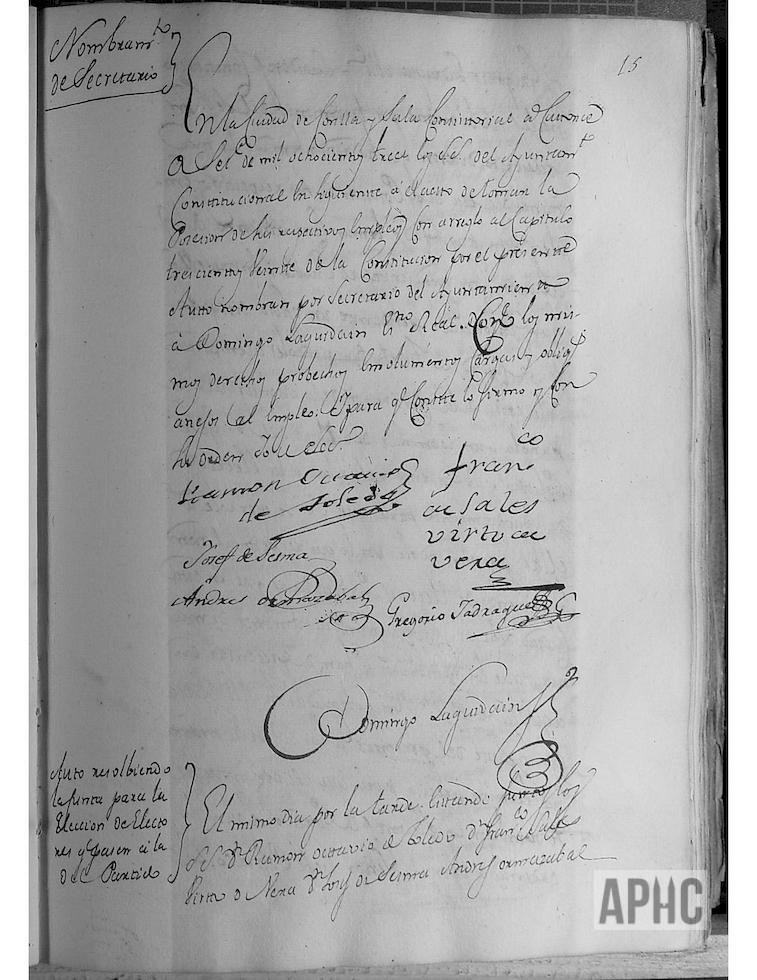 15
Nombramto
de Secretario
En la Ciudad de Corella y Sala Consistorial a Catorce
de mil ochocientos trece los SS. del Ayuntamto
Constitucional en siguiente á el acto de tomar la
Posesion de sus respectivos Empleos con arreglo al Capitulo
trescientos veinte de la Constitucion por el presente
Auto nombran por Secretario del Ayuntamiento
á Domingo Laguidain Esno Real. Con los mis-
mos derechos probechos Emolumentos Cargas y obligs
anejos al Empleo. Y para qe Conste lo firmo y con
su orden Yo el Esno.
Ramon Octavio
de Toledo
Franco
de Sales
virto de
vera
Josef de Sesma
Andres Ormazabal
Gregorio Jadraque
Domingo Laguidain
Auto resolbiendo
la Junta para la
Eleccion de Electo
res qe pasen a la
del Partido
El mismo dia por la tarde Estando juntos los
SS. Dn Ramon octavio de Toledo Dn Franco Sales
Virto de Vera Dn Josef de Sesma Andres ormazabal
APHC